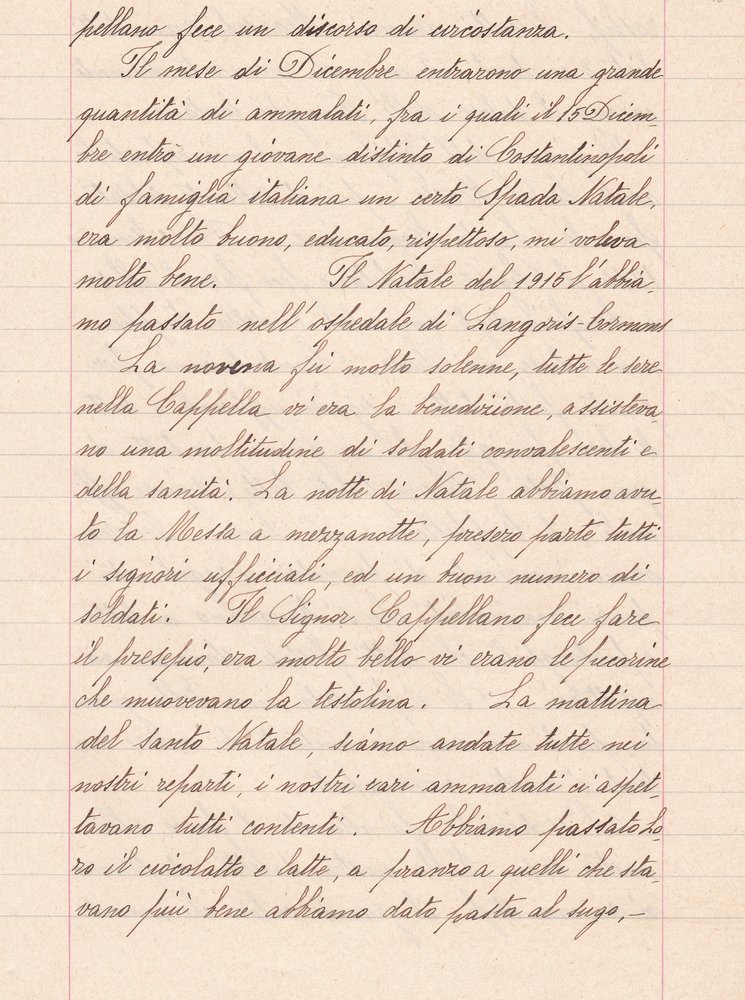 pellano fece un discorso di circostanza.
Il mese di Dicembre entrarono una grande
quantità di ammalati, fra i quali il 15 Dicem-
bre entrò un giovane distinto di Costantinopoli
di famiglia italiana un certo Spada Natale,
era molto buono, educato, rispettoso, mi voleva
molto bene. Il Natale del 1915 l'abbia-
mo passato nell'ospedale di Langoris-Cormons
La novena fù molto solenne, tutte le sere
nella Cappella vi era la benedizione, assisteva-
no una moltitudine di soldati convalescenti e
della sanità. La notte di Natale abbiamo avu-
to la Messa a mezzanotte, presero parte tutti
i signori ufficiali, ed un buon numero di
soldati. Il Signor Cappellano fece fare
il presepio, era molto bello vi erano le pecorine
che muovevano la testolina. La mattina
del santo Natale, siamo andate tutte nei
nostri reparti, i nostri cari ammalati ci aspet-
tavano tutti contenti. Abbiamo passato lo-
ro il ciocolatto e latte, a pranzo a quelli che sta-
vano più bene abbiamo dato pasta al sugo,-